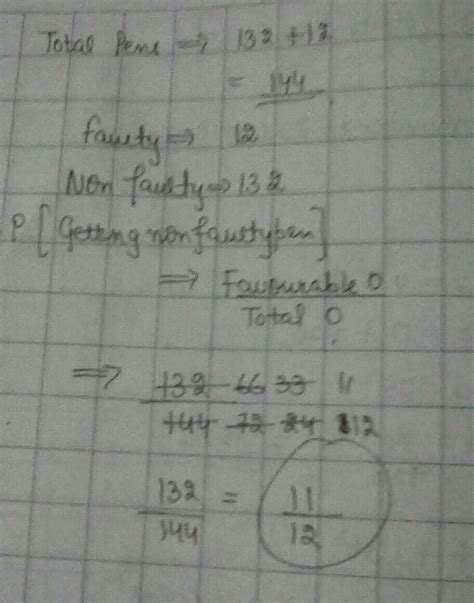 Total Pens ⇒ 132 + 12
= 144
faulty ⇒ 12
Non faulty ⇒ 132
P [Getting non faulty pen]
⇒ Favourable O
Total O
⇒ 132 66 33 11
144 72 24 12
132 = 11
144 12